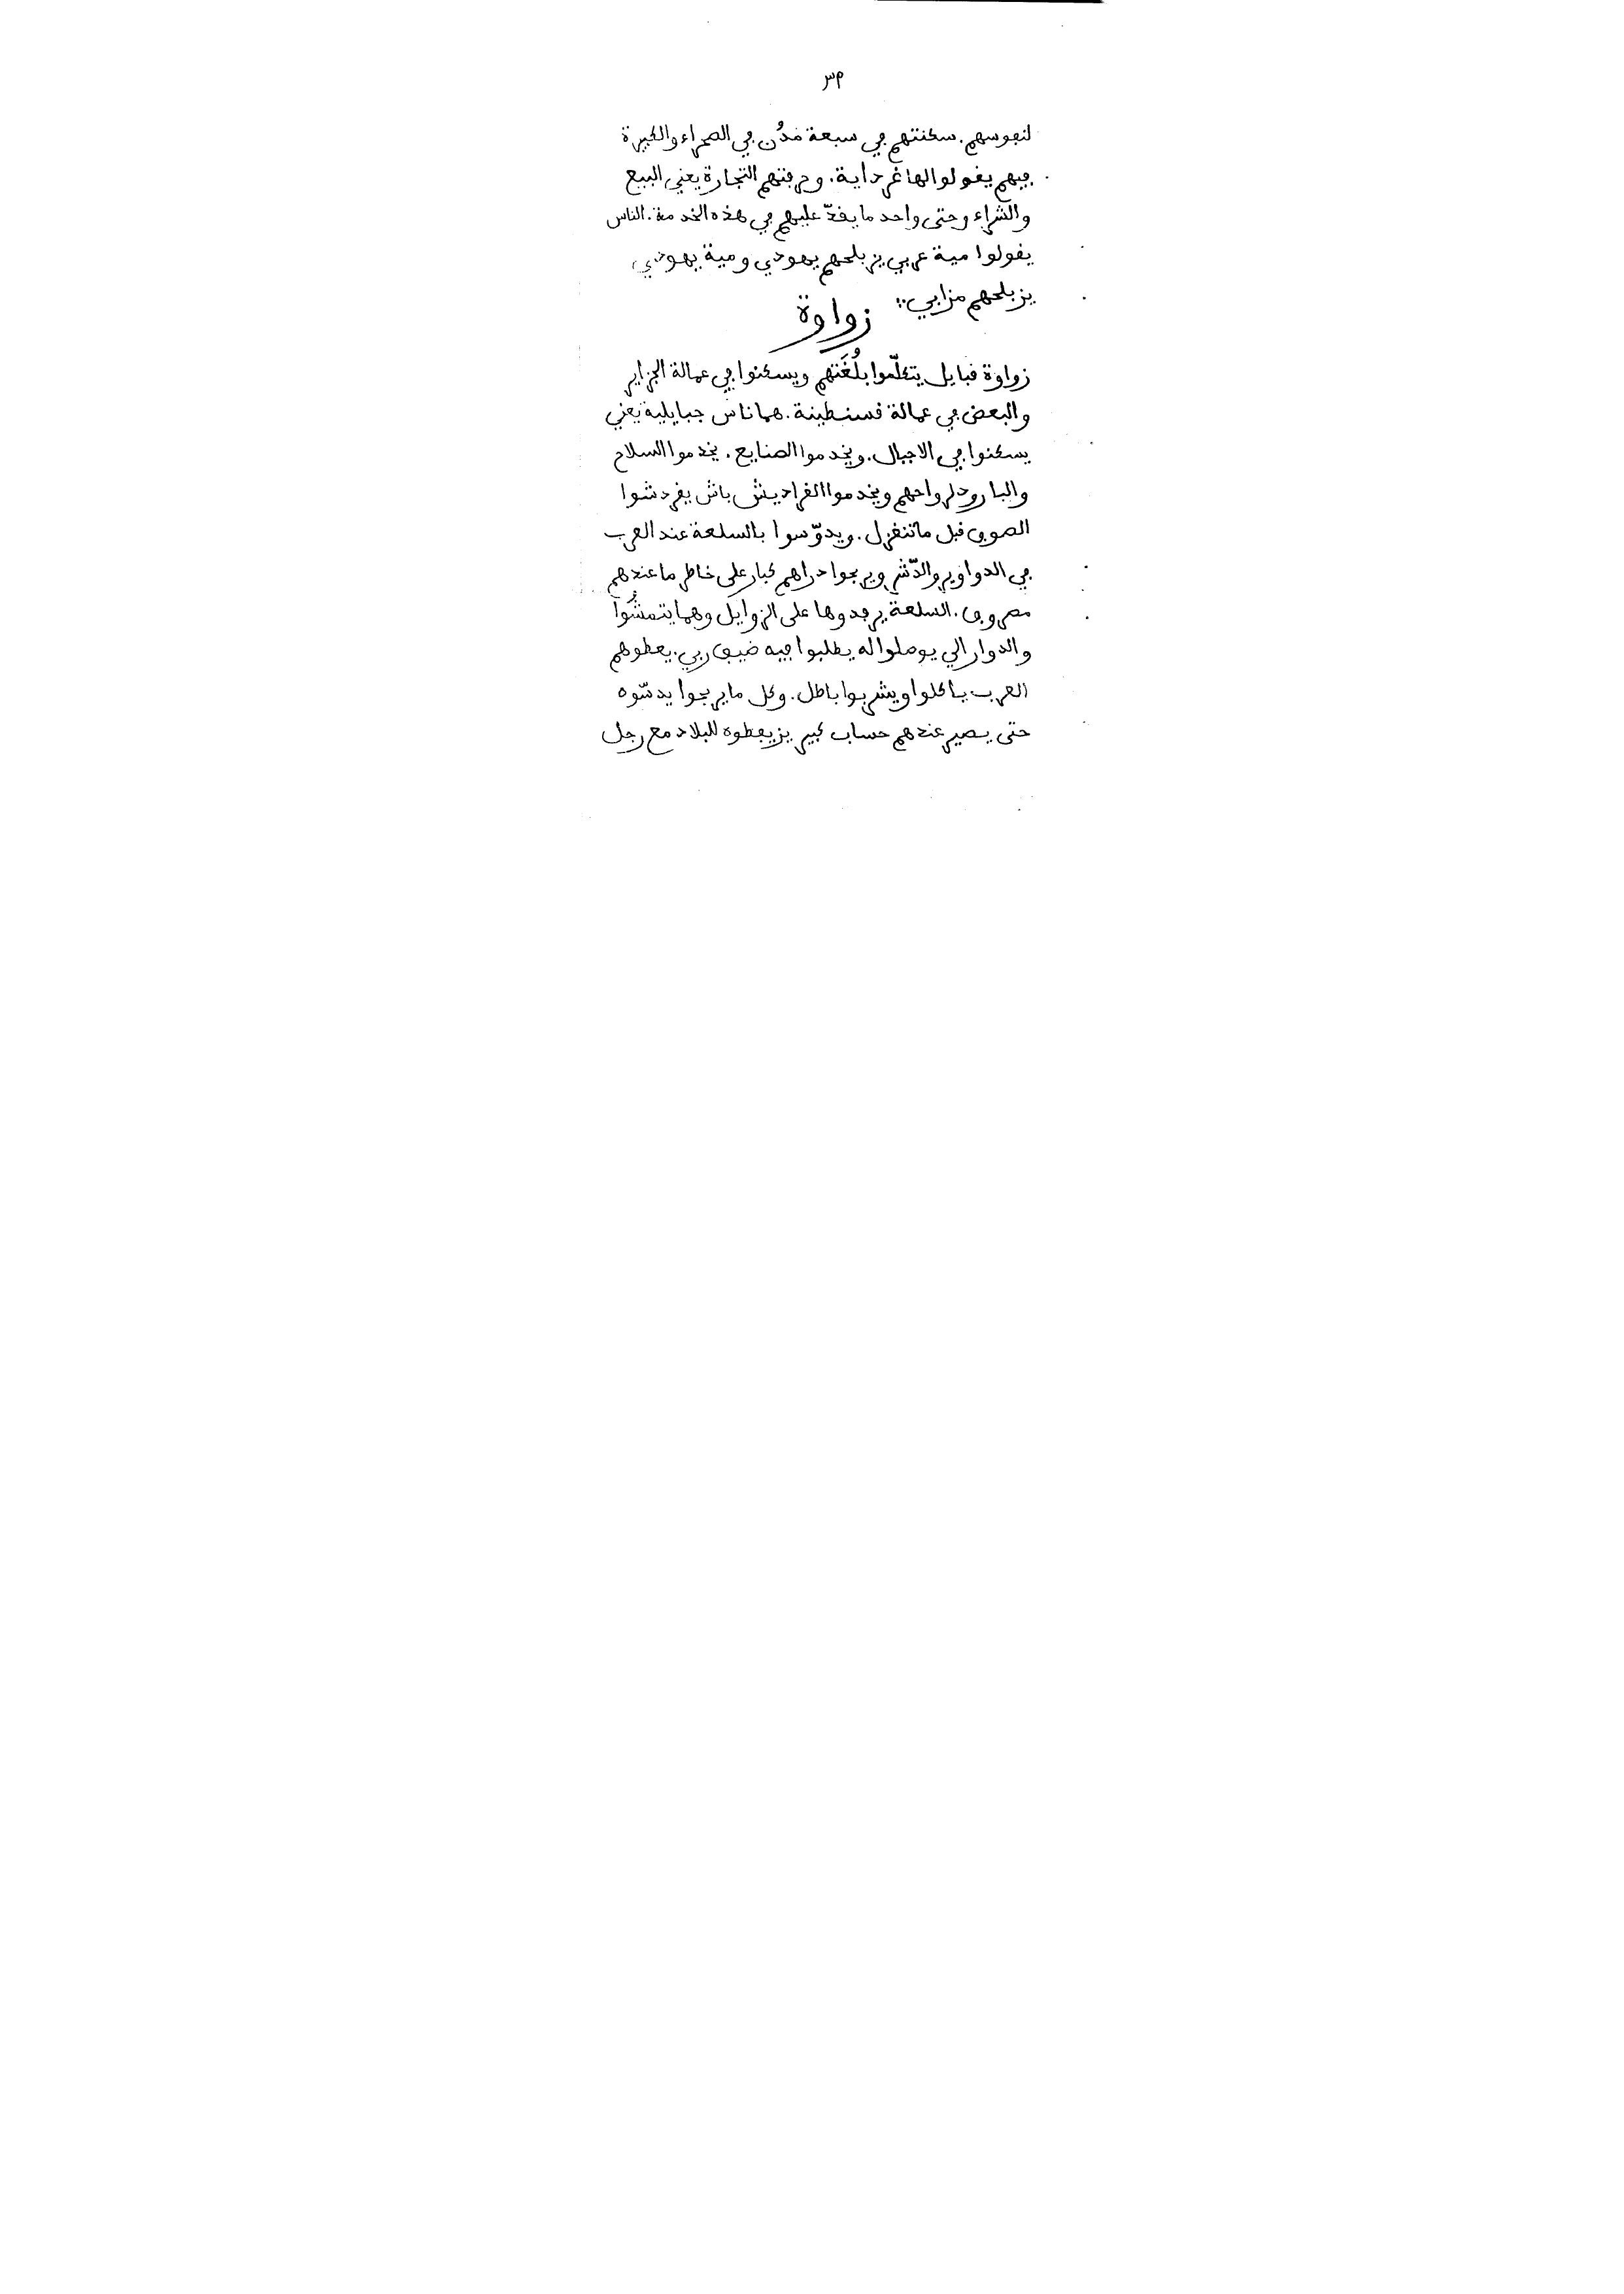 ٣٩
لنفوسهم. سكنتهم في سبعة مُدُن في الصحراء والكبيرة
فيهم يقولوا لها غرداية. وحرفتهم التجارة يعني البيع
والشراء وحتى واحد ما يقدّ عليهم في هذه الخدمة. الناس
يقولوا مية عربي يزبلحهم يهودي ومية يهودي
يزبلحهم مزابي
زواوة
زواوة قبايل يتكلّموا بلُغَتهم ويسكنوا في عمالة الجزاير
والبعض في عمالة قسنطينة. هما ناس جبايلية يعني
يسكنوا في الاجبال. ويخدموا الصنايع. يخدموا السلاح
والبارود لرواحهم ويخدموا القراديش باش يقردشوا
الصوف قبل ما تنغزل. ويدوّسوا بالسلعة عند العرب
في الدواوير والدّشر ويربحوا دراهم كبار على خاطر ما عندهم
مصروف. السلعة يرفدوها على الزوايل وهما يتمشُّوا
والدوار الي يوصلوا له يطلبوا فيه ضيف ربي. يعطوهم
العرب ياكلوا ويشربوا باطل. وكل ما يربحوا يدسّوه
حتى يصير عندهم حساب كبير يزيفطوه للبلاد مع رجل